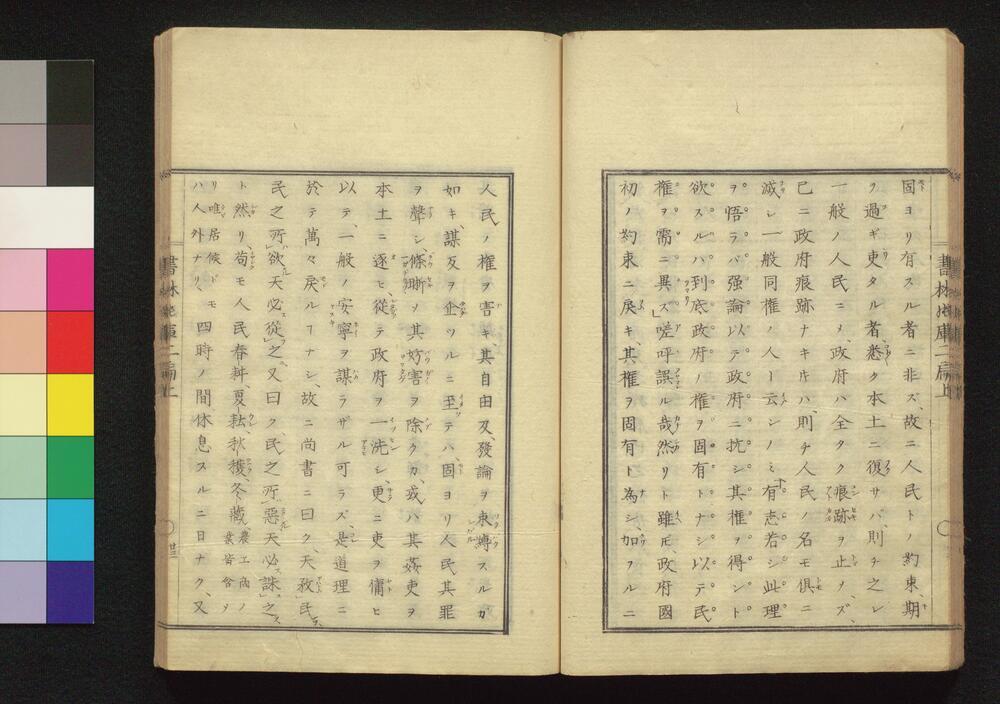 固ヨリ有スル者ニ非ズ、故ニ人民トノ約束、期
ヲ過ギ吏タル者、悉ク本土ニ復サバ、則チ之レ
一般ノ人民ニメ、政府ハ全タク痕跡ヲ止メズ、
已ニ政府痕跡ナキ片ハ、則チ人民ノ名モ俱ニ
滅シ一般同權ノ人ト云ンノミ、有志若シ此理
ヲ悟ラバ强論以テ政府ニ抗シ其權ヲ得ント
欲スルハ到底政府ノ權ヲ固有トナシ以テ民
權ヲ需ニ異ズ」嗟呼誤ル哉然リト雖𪜈、政府國
初ノ約束ニ戾キ、其權ヲ固有ト為シ、加フルニ
人民ノ權ヲ害キ、其自由及、發論ヲ束縛スルガ
如キ、謀反ヲ企ツルニ至テハ、固ヨリ人民其罪
ヲ聲シ、條晰メ其妨害ヲ除クカ、或ハ其姦吏ヲ
本土ニ逐ヒ、從テ政府ヲ一洗シ、更ニ吏ヲ傭ヒ
以テ、一般ノ安寧ヲ謀ラザル可ラズ、是道理ニ
於テ萬々戾ルヿナシ、故ニ尚書ニ曰ク、天敄民
民之所欲天必從之、又曰ク、民之所惡天必誅之
ト然リ、苟モ人民春耕、夏耘、秋穫、冬藏、農工商ノ業皆含ヲ
リ唯居候ドモ
ハ人外ナリ、四時ノ間休息スルニ日ナク、又
書林
二扁上